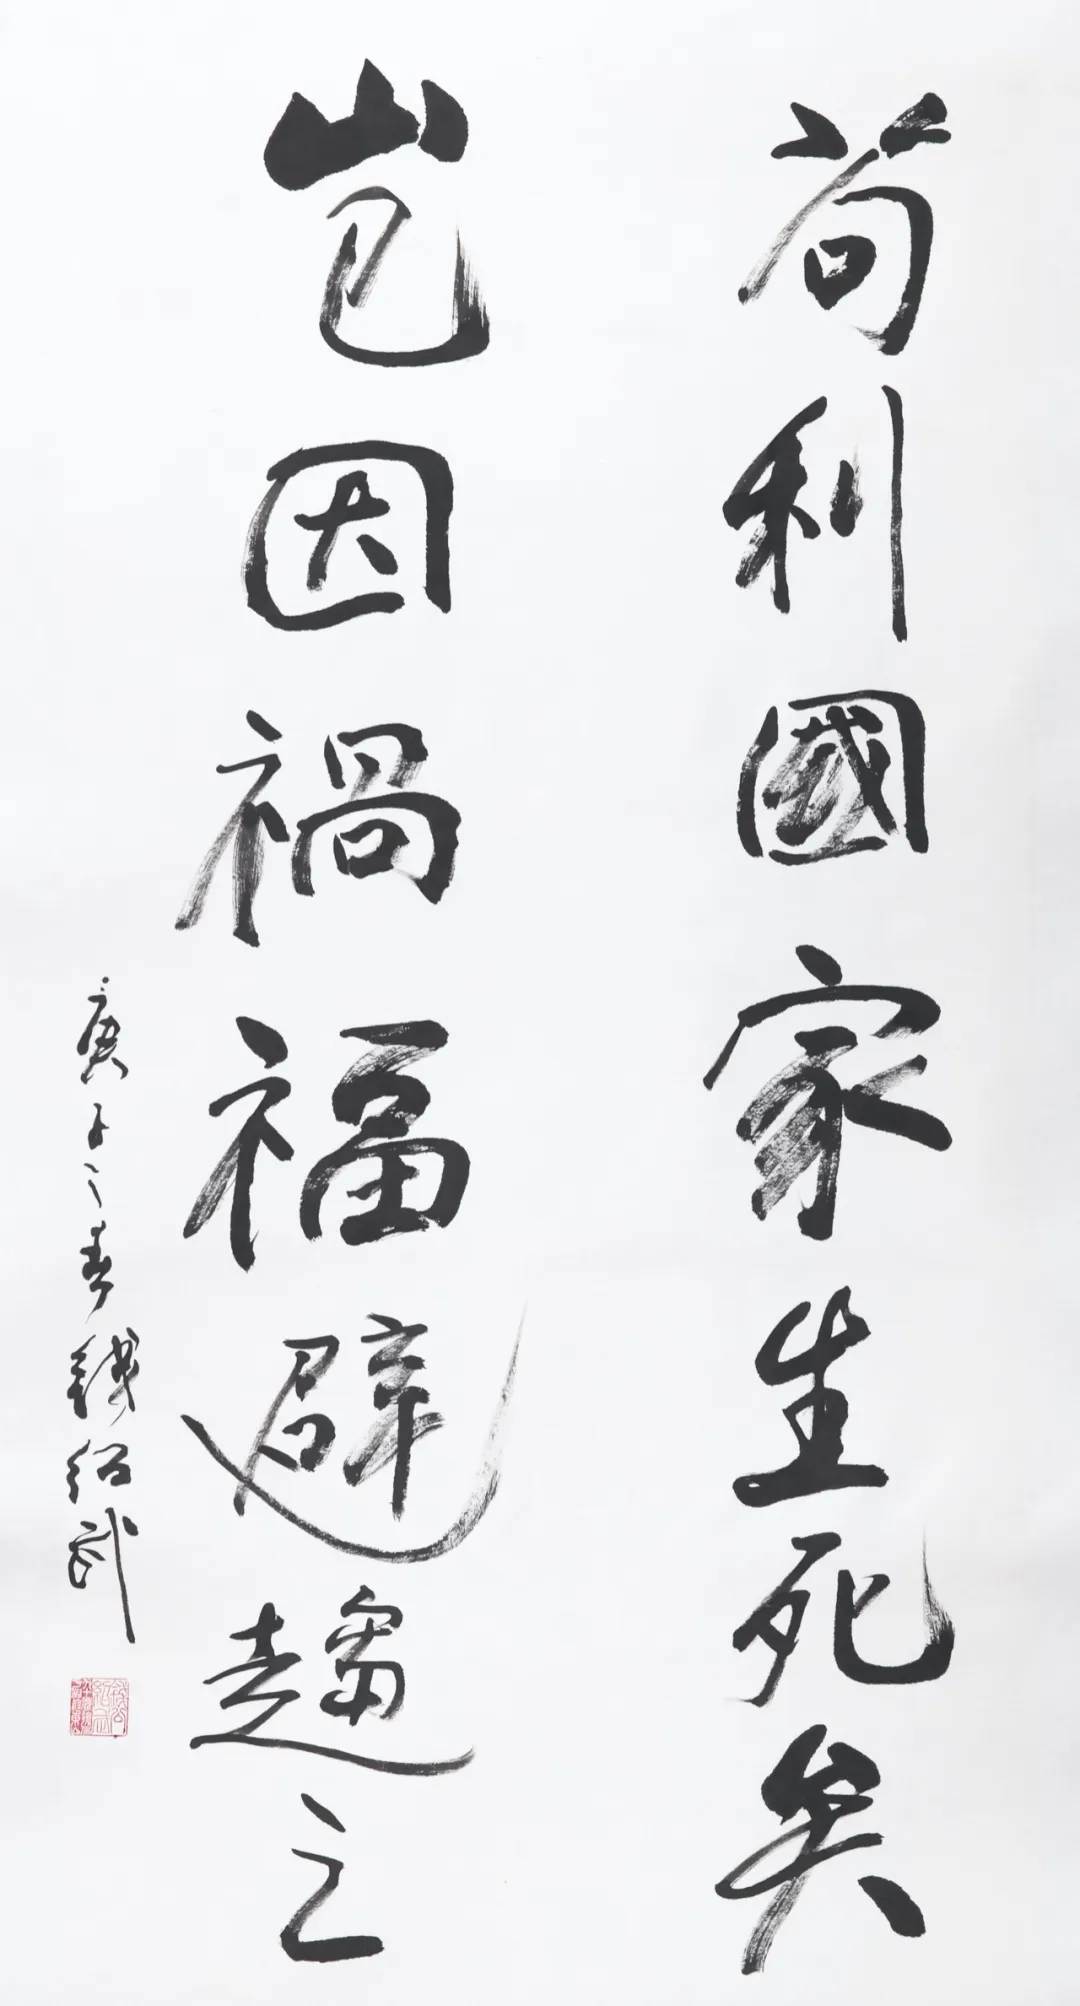 苟利國家生死矣
岂因禍福避趨之
庚子之春錢紹武